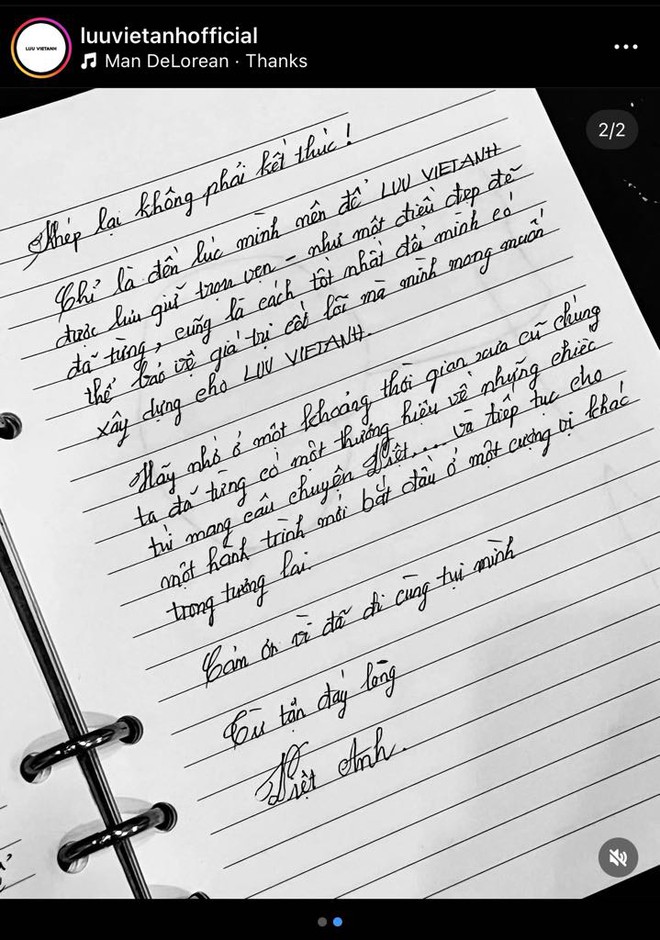 LUU VIETANH
luuvietanhofficial
Man DeLorean · Thanks
2/2
Khép lại không phải kết thúc!
Chỉ là đến lúc mình nên để LUU VIETANH
được lưu giữ trọn vẹn - như một điều đẹp đẽ
đã từng, cũng là cách tốt nhất để mình có
thể bảo vệ giá trị cốt lõi mà mình mong muốn
xây dựng cho LUU VIETANH.
Hãy nhớ ở một khoảng thời gian xưa cũ chúng
ta đã từng có một thương hiệu về những chiếc
túi mang câu chuyện Việt.... và tiếp tục cho
một hành trình mới bắt đầu ở một cương vị khác
trong tương lai.
Cảm ơn vì đã đi cùng tụi mình
Từ tận đáy lòng
Việt Anh.